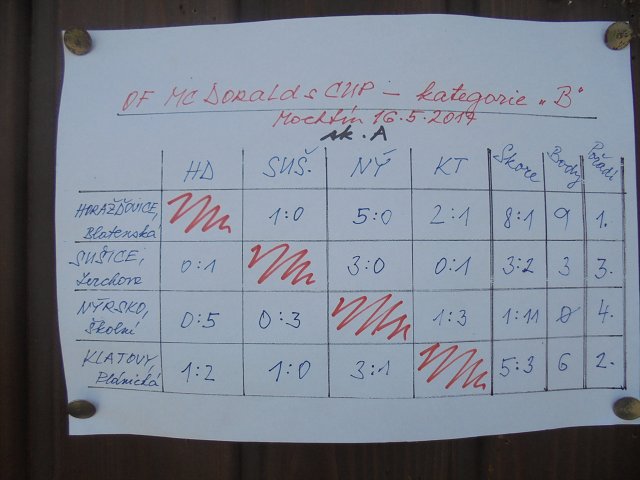 OF MC DONALDs CUP – kategorie „B"
Mochtín 16.5.2017
sk. A
HD SUŠ. NÝ KT Skóre Body Pořadí
HORAŽĎOVICE, Blatenská 1:0 5:0 2:1 8:1 9 1.
SUŠICE, Lerchova 0:1 3:0 0:1 3:2 3 3.
NÝRSKO, Školní 0:5 0:3 1:3 1:11 0 4.
KLATOVY, Plánická 1:2 1:0 3:1 5:3 6 2.